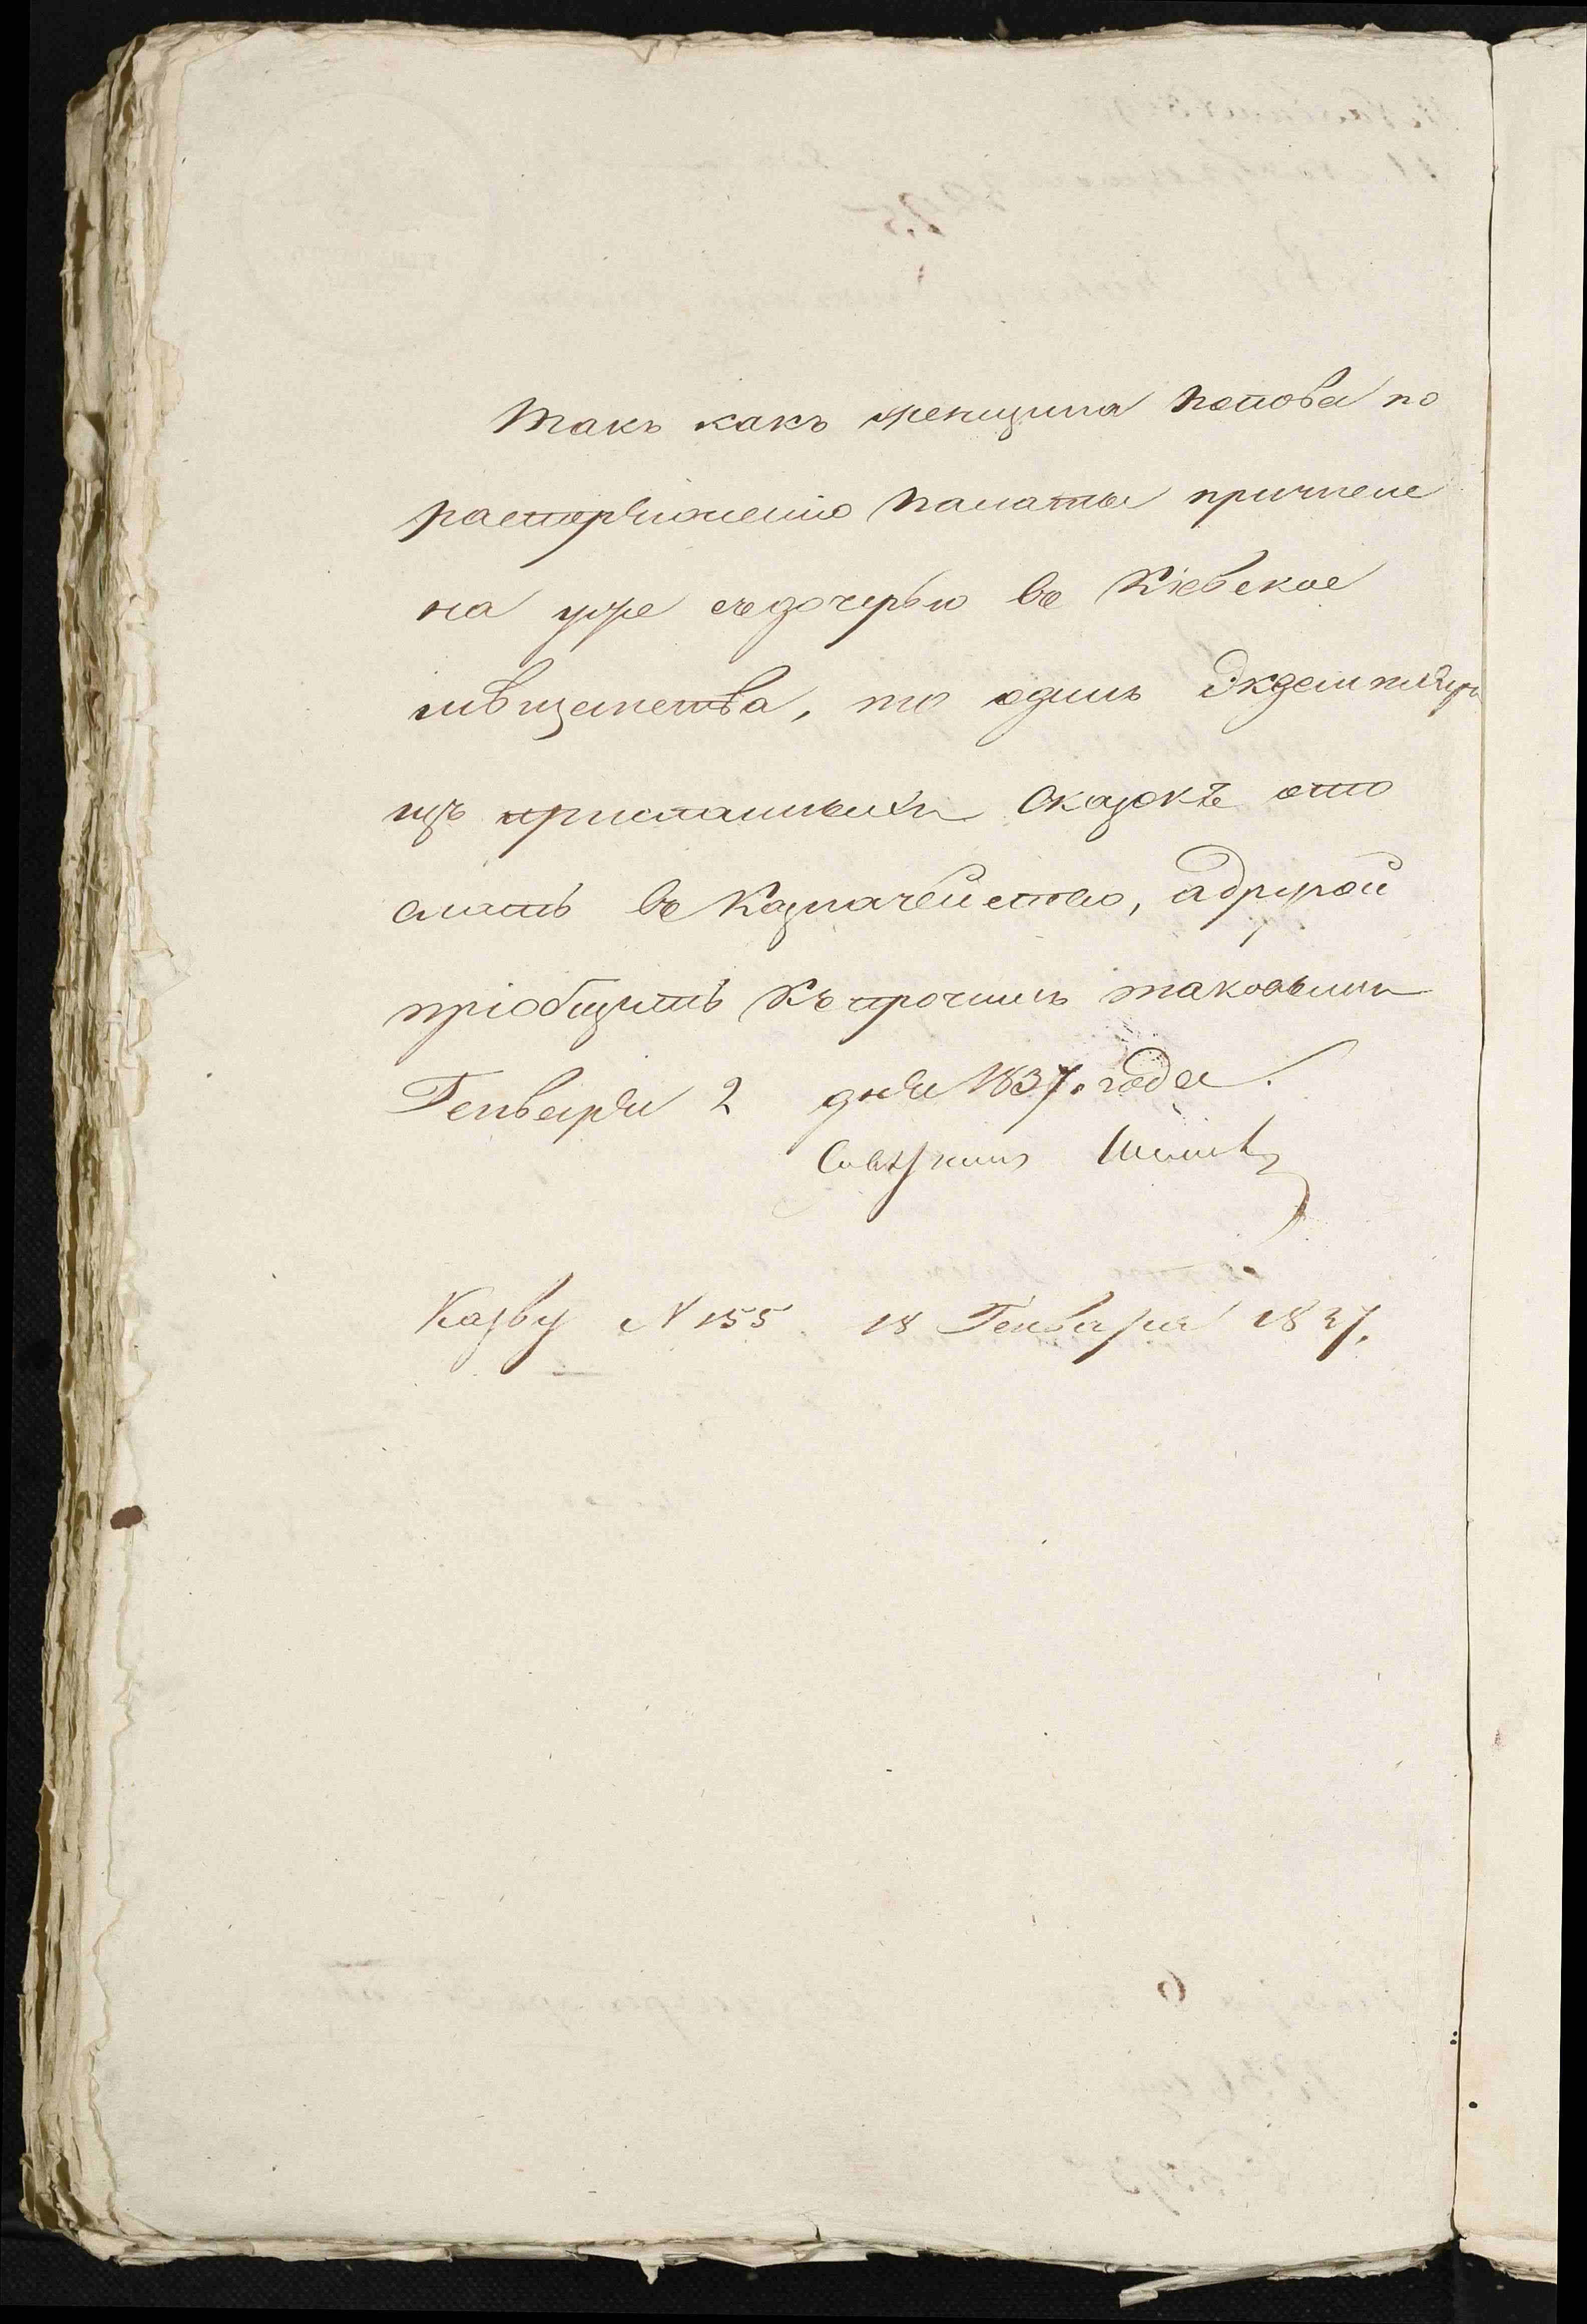 Такъ какъ женщина Попова по
распоряженію Палаты причисле
на уже съ дочерью въ Кіевское
мѣщанства, то одинъ Экземпляръ
изъ присланныхъ Сказокъ ото
слать въ Казначейство, а другой
пріобщить къ прочимъ таковымъ
Генваря 2 дня 1837. года.
Совѣтникъ
Каз᠎ву № 155. 18 Генваря 1837.